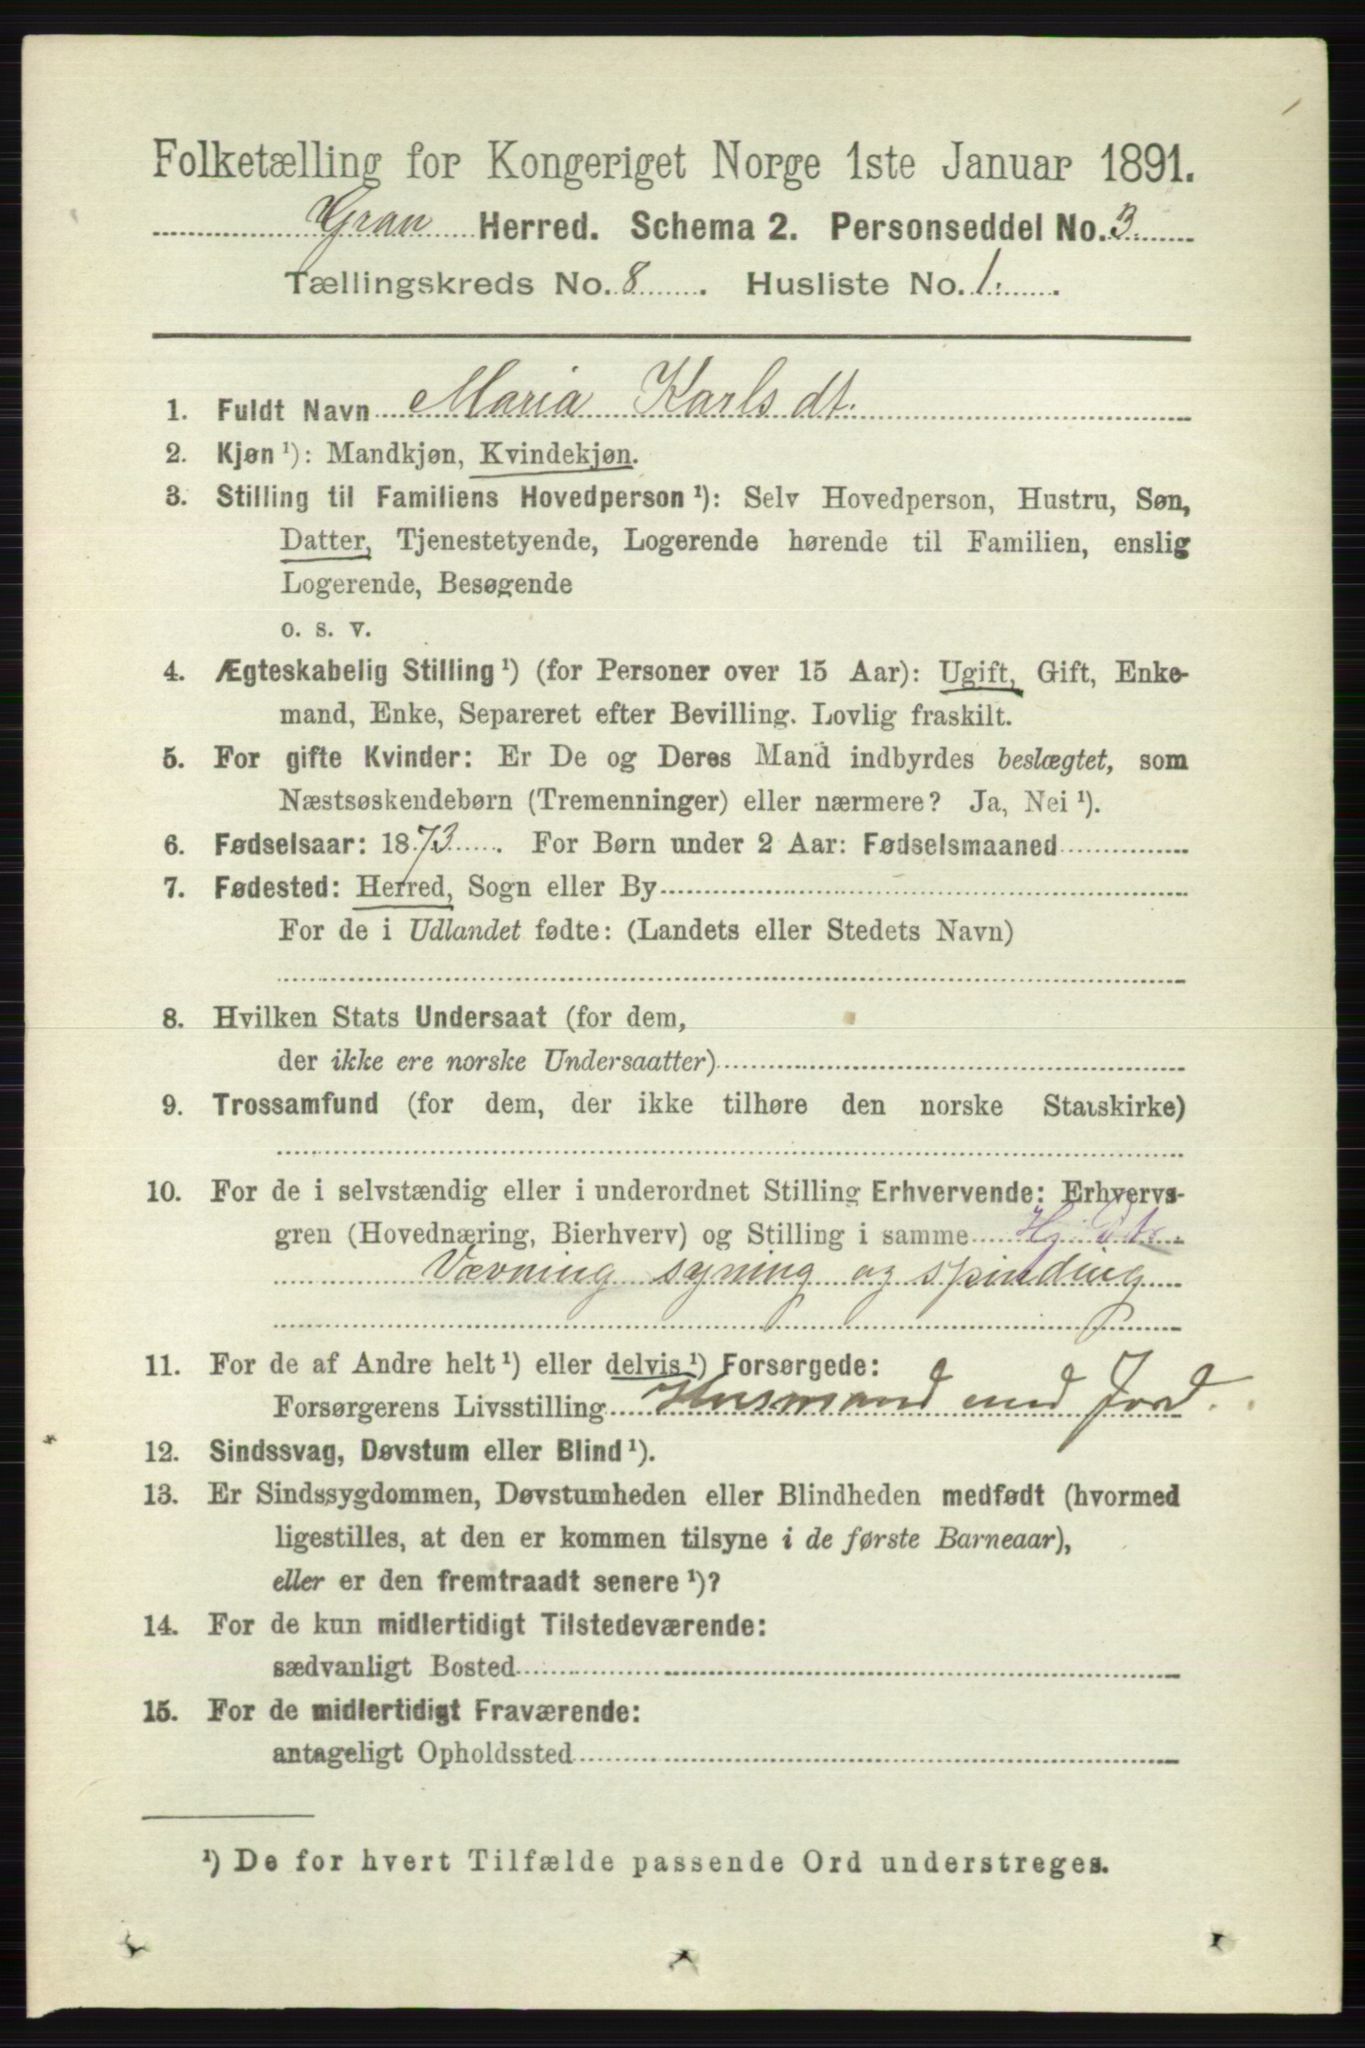 Folketælling for Kongeriget Norge 1ste Januar 1891.
Gran Herred. Schema 2. Personseddel No. 3
Tællingskreds No. 8. Husliste No. 1.
1. Fuldt Navn Maria Karlsdt.
2. Kjøn ¹): Mandkjøn, Kvindekjøn.
3. Stilling til Familiens Hovedperson ¹): Selv Hovedperson, Hustru, Søn,
Datter, Tjenestetyende, Logerende hørende til Familien, enslig
Logerende, Besøgende
o. s. v.
4. Ægteskabelig Stilling ¹) (for Personer over 15 Aar): Ugift, Gift, Enke-
mand, Enke, Separeret efter Bevilling. Lovlig fraskilt.
5. For gifte Kvinder: Er De og Deres Mand indbyrdes beslægtet, som
Næstsøskendebørn (Tremenninger) eller nærmere? Ja, Nei ¹).
6. Fødselsaar: 1873. For Børn under 2 Aar: Fødselsmaaned
7. Fødested: Herred, Sogn eller By
For de i Udlandet fødte: (Landets eller Stedets Navn)
8. Hvilken Stats Undersaat (for dem,
der ikke ere norske Undersaatter)
9. Trossamfund (for dem, der ikke tilhøre den norske Statskirke)
10. For de i selvstændig eller i underordnet Stilling Erhvervende: Erhvervs-
gren (Hovednæring, Bierhverv) og Stilling i samme Hj.
Vævning syning og spinding
11. For de af Andre helt ¹) eller delvis ¹) Forsørgede:
Forsørgerens Livsstilling Husmand med Jord.
12. Sindssvag, Døvstum eller Blind ¹).
13. Er Sindssygdommen, Døvstumheden eller Blindheden medfødt (hvormed
ligestilles, at den er kommen tilsyne i de første Barneaar),
eller er den fremtraadt senere ¹)?
14. For de kun midlertidigt Tilstedeværende:
sædvanligt Bosted
15. For de midlertidigt Fraværende:
antageligt Opholdssted
¹) De for hvert Tilfælde passende Ord understreges.